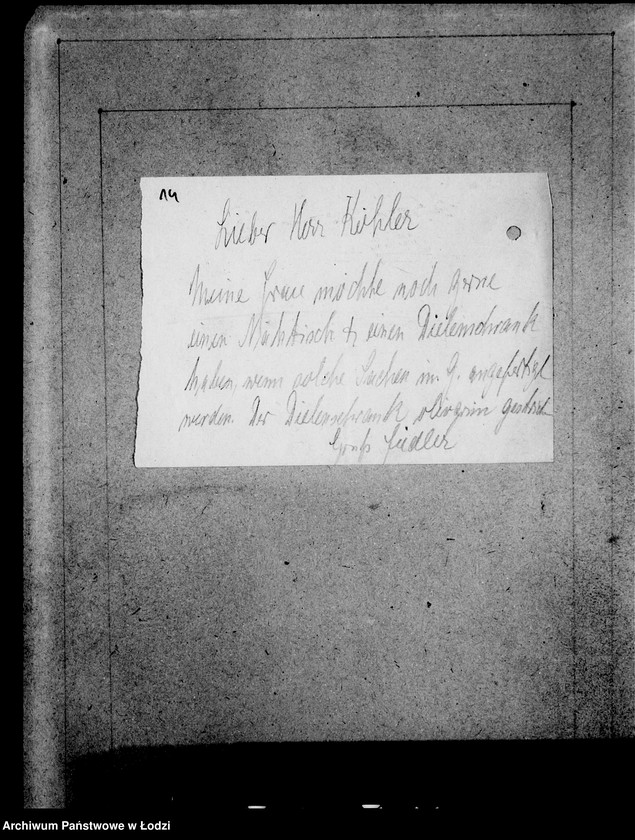 14
Lieber Herr Köhler
Meine Frau möchte noch gerne
einen Nähtisch & einen Dielenschrank
haben, wenn solche Sachen im G. angefertigt
werden. Der Dielenschrank olivgrün
Gruß Fiedler
Archiwum Państwowe w Łodzi